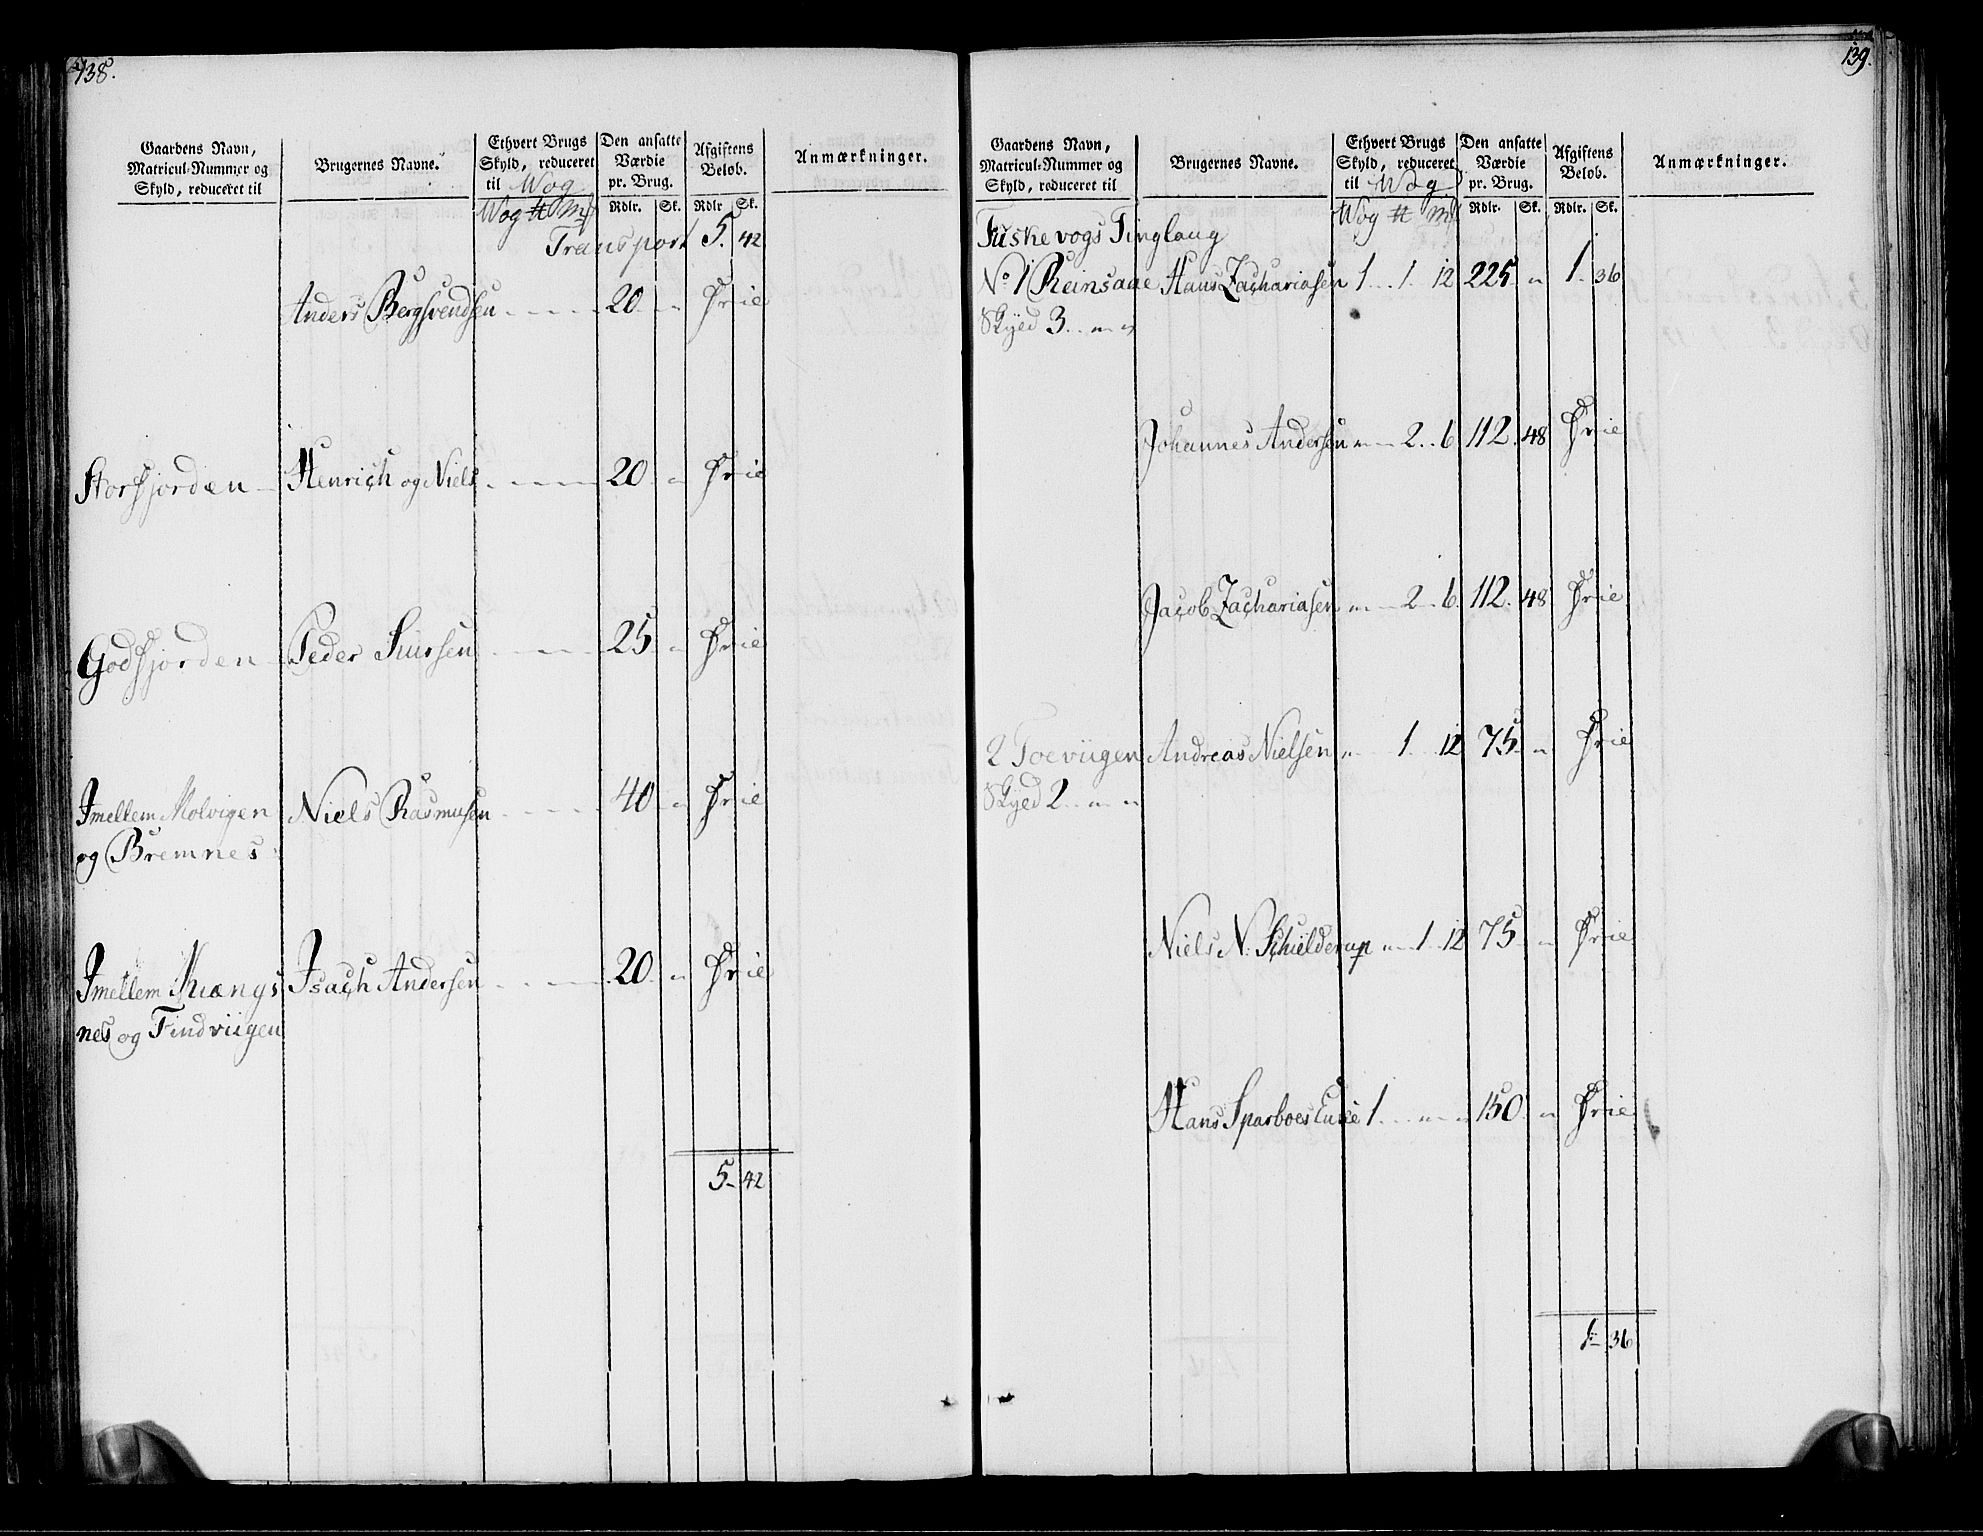 138.
Gaardens Navn, Matricul-Nummer og Skyld, reduceret til
Brugernes Navne.
Ethvert Brugs Skyld, reduceret til Wog
Den ansatte Værdie pr. Brug.
Afgiftens Beløb.
Anmærkninger.
Wog ℔ mk Rdlr. Sk. Rdlr Sk.
Transport 5. 42
Anders Bergsvendsen 20 " Frie
Storfjorden Henrich og Niels 20 " Frie
Godfjorden Peder Siursen 25 " Frie
Imellem Molvigen Niels Rasmusen 40 " Frie
og Bremnes
Imellem Kiængs Isach Andersen 20 " Frie
nes og Findviigen
5 42
139.
Gaardens Navn, Matricul-Nummer og Skyld, reduceret til
Brugernes Navne.
Ethvert Brugs Skyld, reduceret til Wog
Den ansatte Værdie pr. Brug.
Afgiftens Beløb.
Anmærkninger.
Wog ℔ mk Rdlr. Sk. Rdlr. Sk.
Fuskevogs Tinglaug
No 1 Reinsaae Hans Zachariasen 1 1 12 225 " 1. 36
Skyld 3 " "
Johannes Andersen " 2 6 112 48 Frie
Jacob Zachariasen " 2 6 112 48 Frie
2 Toeviigen Andreas Nielsen " 1 12 75 " Frie
Skyld 2 " "
Niels N. Schielderup " 1 12 75 " Frie
Hans Sparboes Enke 1 " " 150 " Frie
1 36